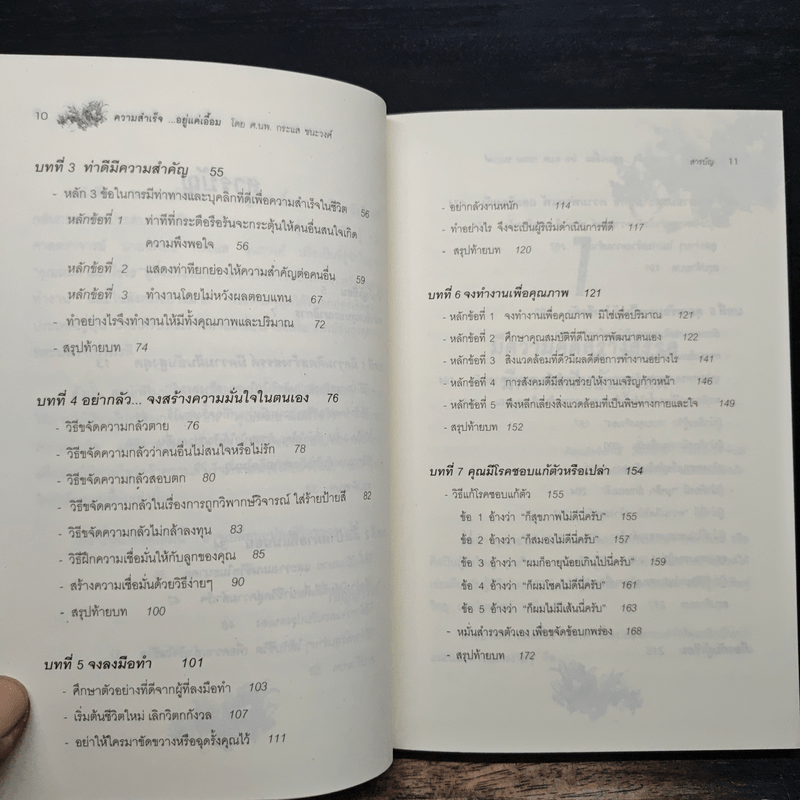 10 ความสำเร็จ ...อยู่แค่เอื้อม โดย ศ.นพ. กระแส ชนะวงศ์
บทที่ 3 ท่าดีมีความสำคัญ 55
- หลัก 3 ข้อในการมีท่าทางและบุคลิกที่ดีเพื่อความสำเร็จในชีวิต 56
หลักข้อที่ 1 ท่าทีที่กระตือรือร้นจะกระตุ้นให้คนอื่นสนใจเกิด
ความพึงพอใจ 56
หลักข้อที่ 2 แสดงท่าทียกย่องให้ความสำคัญต่อคนอื่น 59
หลักข้อที่ 3 ทำงานโดยไม่หวังผลตอบแทน 67
- ทำอย่างไรจึงทำงานให้มีทั้งคุณภาพและปริมาณ 72
- สรุปท้ายบท 74
บทที่ 4 อย่ากลัว... จงสร้างความมั่นใจในตนเอง 76
- วิธีขจัดความกลัวตาย 76
- วิธีขจัดความกลัวว่าคนอื่นไม่สนใจหรือไม่รัก 78
- วิธีขจัดความกลัวสอบตก 80
- วิธีขจัดความกลัวในเรื่องการถูกวิพากษ์วิจารณ์ ใส่ร้ายป้ายสี 82
- วิธีขจัดความกลัวไม่กล้าลงทุน 83
- วิธีฝึกความเชื่อมั่นให้กับลูกของคุณ 85
- สร้างความเชื่อมั่นด้วยวิธีง่ายๆ 90
- สรุปท้ายบท 100
บทที่ 5 จงลงมือทำ 101
- ศึกษาตัวอย่างที่ดีจากผู้ที่ลงมือทำ 103
- เริ่มต้นชีวิตใหม่ เลิกวิตกกังวล 107
- อย่าให้ใครมาขัดขวางหรือฉุดรั้งคุณไว้ 111
สารบัญ 11
- อย่ากลัวงานหนัก 114
- ทำอย่างไร จึงจะเป็นผู้ริเริ่มดำเนินการที่ดี 117
- สรุปท้ายบท 120
บทที่ 6 จงทำงานเพื่อคุณภาพ 121
- หลักข้อที่ 1 จงทำงานเพื่อคุณภาพ มิใช่เพื่อปริมาณ 121
- หลักข้อที่ 2 ศึกษาคุณสมบัติที่ดีในการพัฒนาตนเอง 122
- หลักข้อที่ 3 สิ่งแวดล้อมที่ดีว่ามีผลดีต่อการทำงานอย่างไร 141
- หลักข้อที่ 4 การสังคมดีมีส่วนช่วยให้งานเจริญก้าวหน้า 146
- หลักข้อที่ 5 พึงหลีกเลี่ยงสิ่งแวดล้อมที่เป็นพิษทางกายและใจ 149
- สรุปท้ายบท 152
บทที่ 7 คุณมีโรคชอบแก้ตัวหรือเปล่า 154
- วิธีแก้โรคชอบแก้ตัว 155
ข้อ 1 อ้างว่า "ก็สุขภาพไม่ดีนี่ครับ" 155
ข้อ 2 อ้างว่า "ก็สมองไม่ดีนี่ครับ" 157
ข้อ 3 อ้างว่า "ผมก็อายุน้อยเกินไปนี่ครับ" 159
ข้อ 4 อ้างว่า "ก็ผมโชคไม่ดีนี่ครับ" 161
ข้อ 5 อ้างว่า "ก็ผมไม่มีเส้นนี่ครับ" 163
- หมั่นสำรวจตัวเอง เพื่อขจัดข้อบกพร่อง 168
- สรุปท้ายบท 172